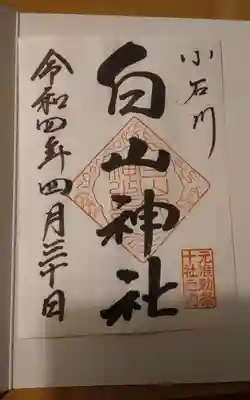 小石川
白山神社
元准勅祭
十社之内
令和四年四月三十日